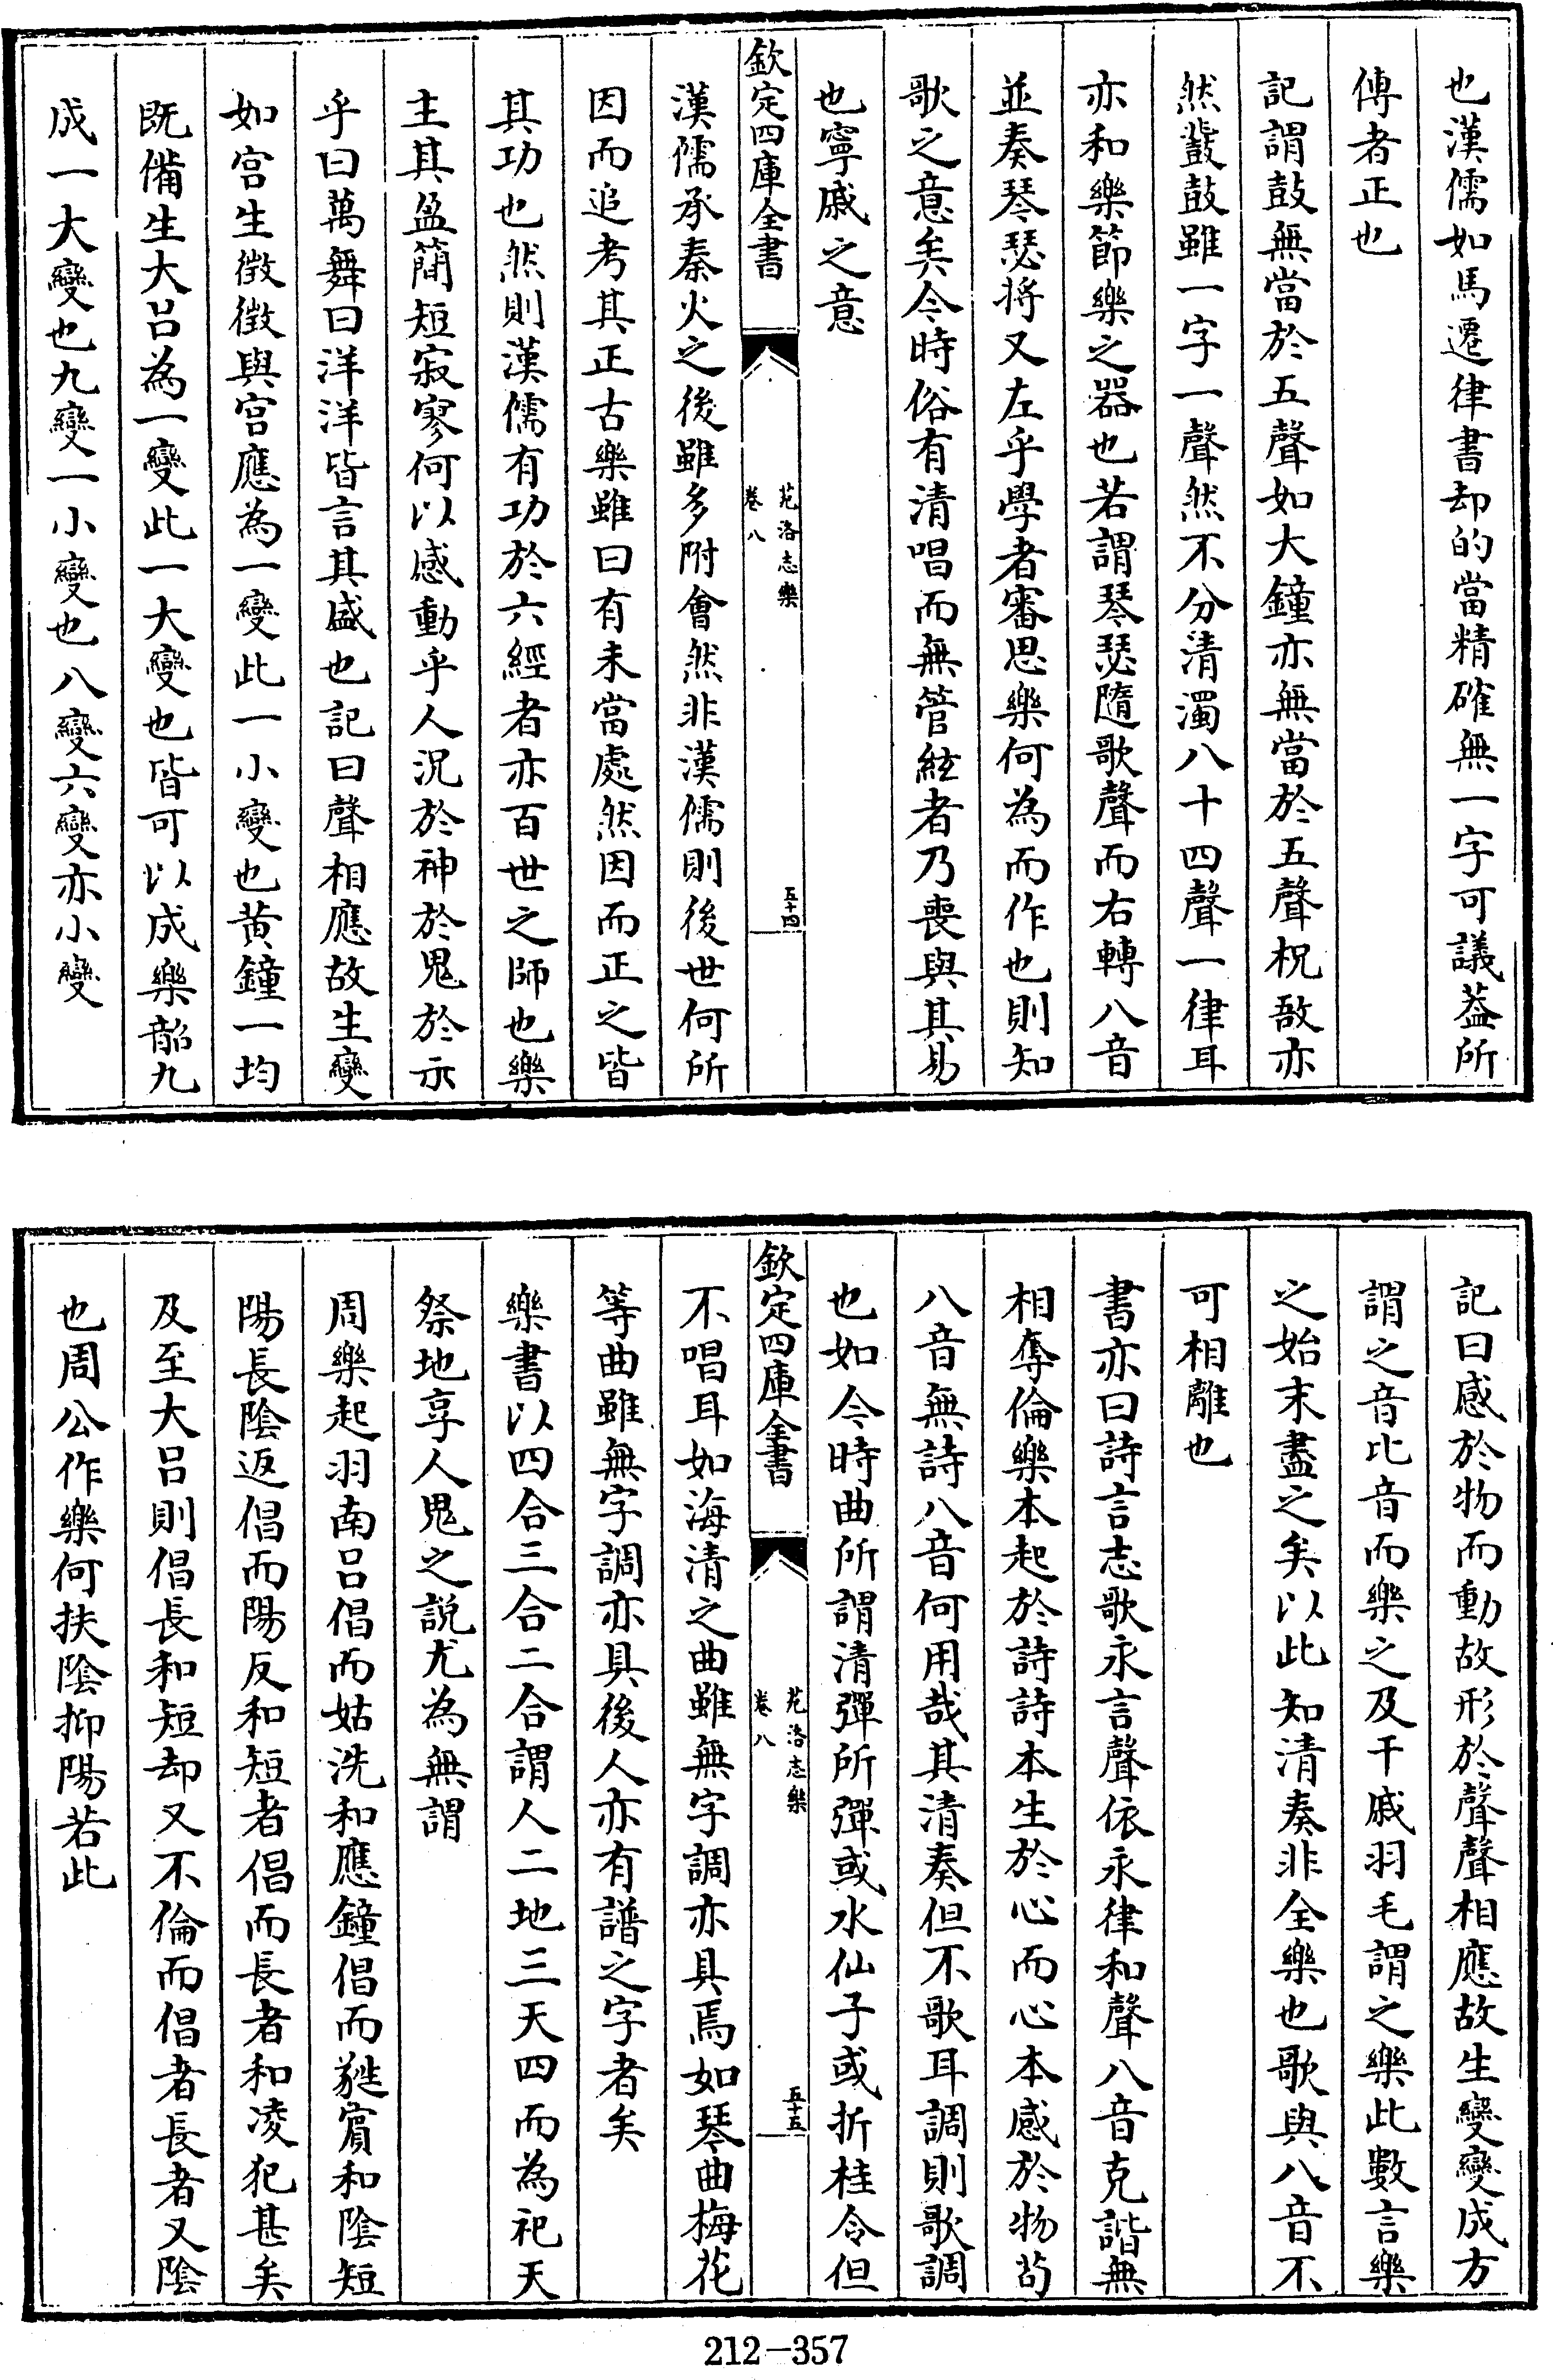 也漢儒如馬遷律書却的當精確無一字可議葢所
傳者正也
記謂鼓無當於五聲如大鐘亦無當於五聲柷敔亦
然鼗鼓雖一字一聲然不分清濁八十四聲一律耳
亦和樂節樂之器也若謂琴瑟隨歌聲而右轉八音
並奏琴瑟將又左乎學者審思樂何為而作也則知
歌之意矣今時俗有清唱而無管絃者乃喪與其易
也寧戚之意
欽定四庫全書
苑洛志樂
卷八
五十四
漢儒承秦火之後雖多附會然非漢儒則後世何所
因而追考其正古樂雖曰有未當處然因而正之皆
其功也然則漢儒有功於六經者亦百世之師也樂
主其盈簡短寂寥何以感動乎人況於神於鬼於示
乎曰萬舞曰洋洋皆言其盛也記曰聲相應故生變
如宫生徴徴與宫應為一變此一小變也黄鐘一均
既備生大呂為一變此一大變也皆可以成樂韶九
成一大變也九變一小變也八變六變亦小變
記曰感於物而動故形於聲聲相應故生變變成方
謂之音比音而樂之及干戚羽毛謂之樂此數言樂
之始末盡之矣以此知清奏非全樂也歌與八音不
可相離也
書亦曰詩言志歌永言聲依永律和聲八音克諧無
相奪倫樂本起於詩詩本生於心而心本感於物茍
八音無詩八音何用哉其清奏但不歌耳調則歌調
也如今時曲所謂清彈所彈或水仙子或折桂令但
欽定四庫全書
苑洛志樂
卷八
五十五
不唱耳如海清之曲雖無字調亦具焉如琴曲梅花
等曲雖無字調亦具後人亦有譜之字者矣
樂書以四合三合二合謂人二地三天四而為祀天
祭地享人鬼之說尤為無謂
周樂起羽南呂倡而姑洗和應鐘倡而蕤賔和陰短
陽長陰返倡而陽反和短者倡而長者和凌犯甚矣
及至大呂則倡長和短却又不倫而倡者長者又陰
也周公作樂何扶陰抑陽若此
212-357